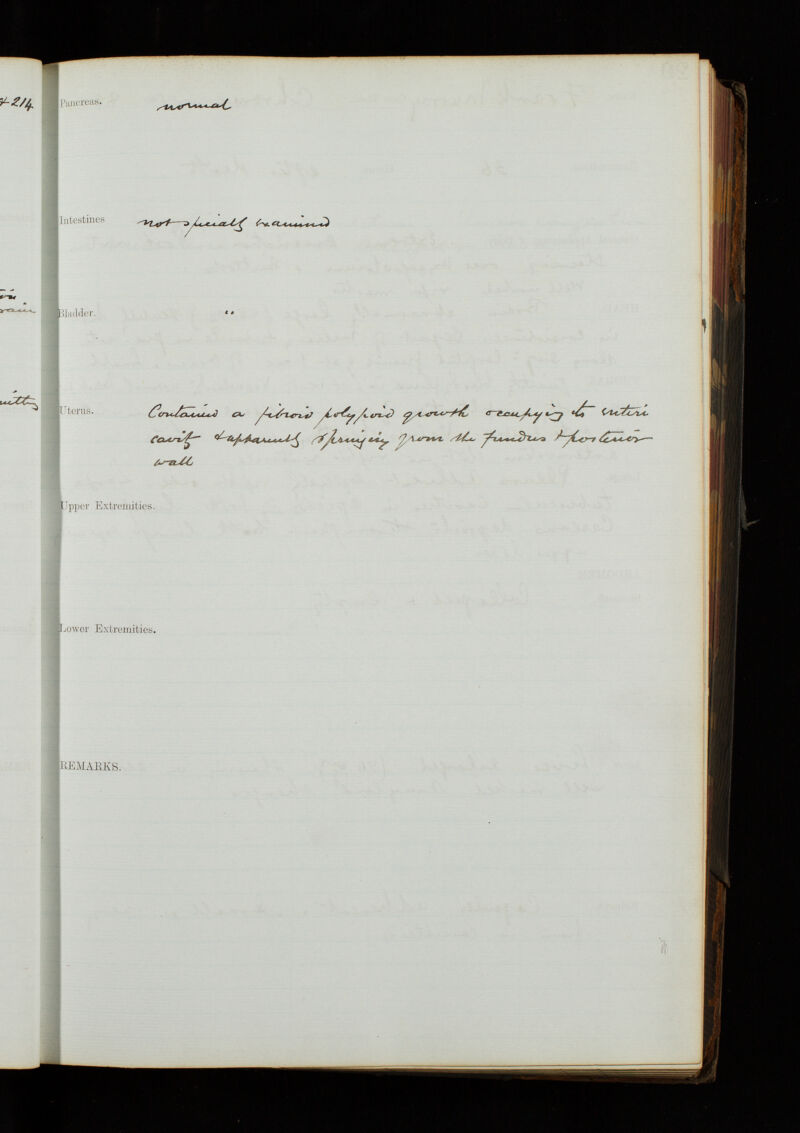 & 214
Pancreas. normal
Intestines not specially examined
Bladder. "
Uterus. Contained a fibroid polypoid growth occupying its entire
cavity & apparently springing from the fundus & posterior
wall
Upper Extremities.
Lower Extremities.
REMARKS.